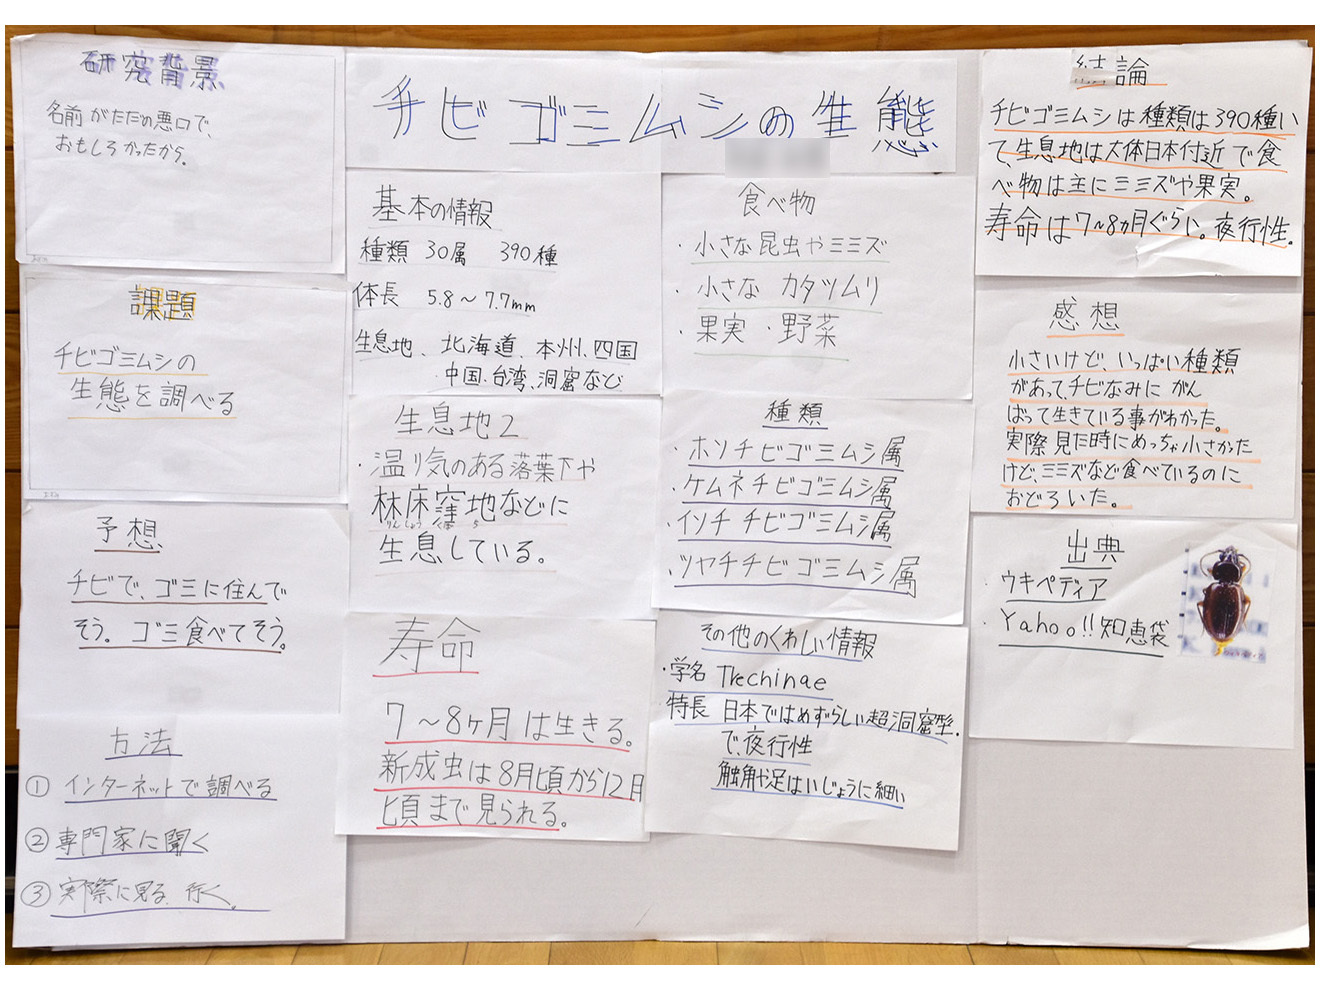 研究背景
名前がただの悪口で、
おもしろかったから。
課題
チビゴミムシの
生態を調べる
予想
チビで、ゴミに住んで
そう。ゴミ食べてそう。
方法
① インターネットで調べる
② 専門家に聞く
③ 実際に見る 行く。
チビゴミムシの生態
基本の情報
種類 30属 390種
体長 5.8〜7.7mm
生息地、北海道、本州、四国
中国、台湾、洞窟など
生息地2
・温り気のある落葉下や
林床窪地などに
りんしょう くぼ ち
生息している。
寿命
7〜8ヶ月は生きる。
新成虫は8月頃から12月
頃まで見られる。
食べ物
・小さな昆虫やミミズ
・小さな カタツムリ
・果実・野菜
種類
・ホソチビゴミムシ属
・ケムネチビゴミムシ属
・イソチチビゴミムシ属
・ツヤチチビゴミムシ属
その他のくわしい情報
・学名 Trechinae
特長 日本ではめずらしい超洞窟型。
で、夜行性
触角や足はいじょうに細い
結論
チビゴミムシは種類は390種い
て、生息地は大体日本付近で食
べ物は主にミミズや果実。
寿命は7〜8ヵ月ぐらい。夜行性。
感想
小さいけど、いっぱい種類
があって、チビなみにがん
ばって生きている事がわかった。
実際見た時にめっちゃ小さかった
けど、ミミズなど食べているのに
おどろいた。
出典
・ウキペディア
・Yahoo!!知恵袋